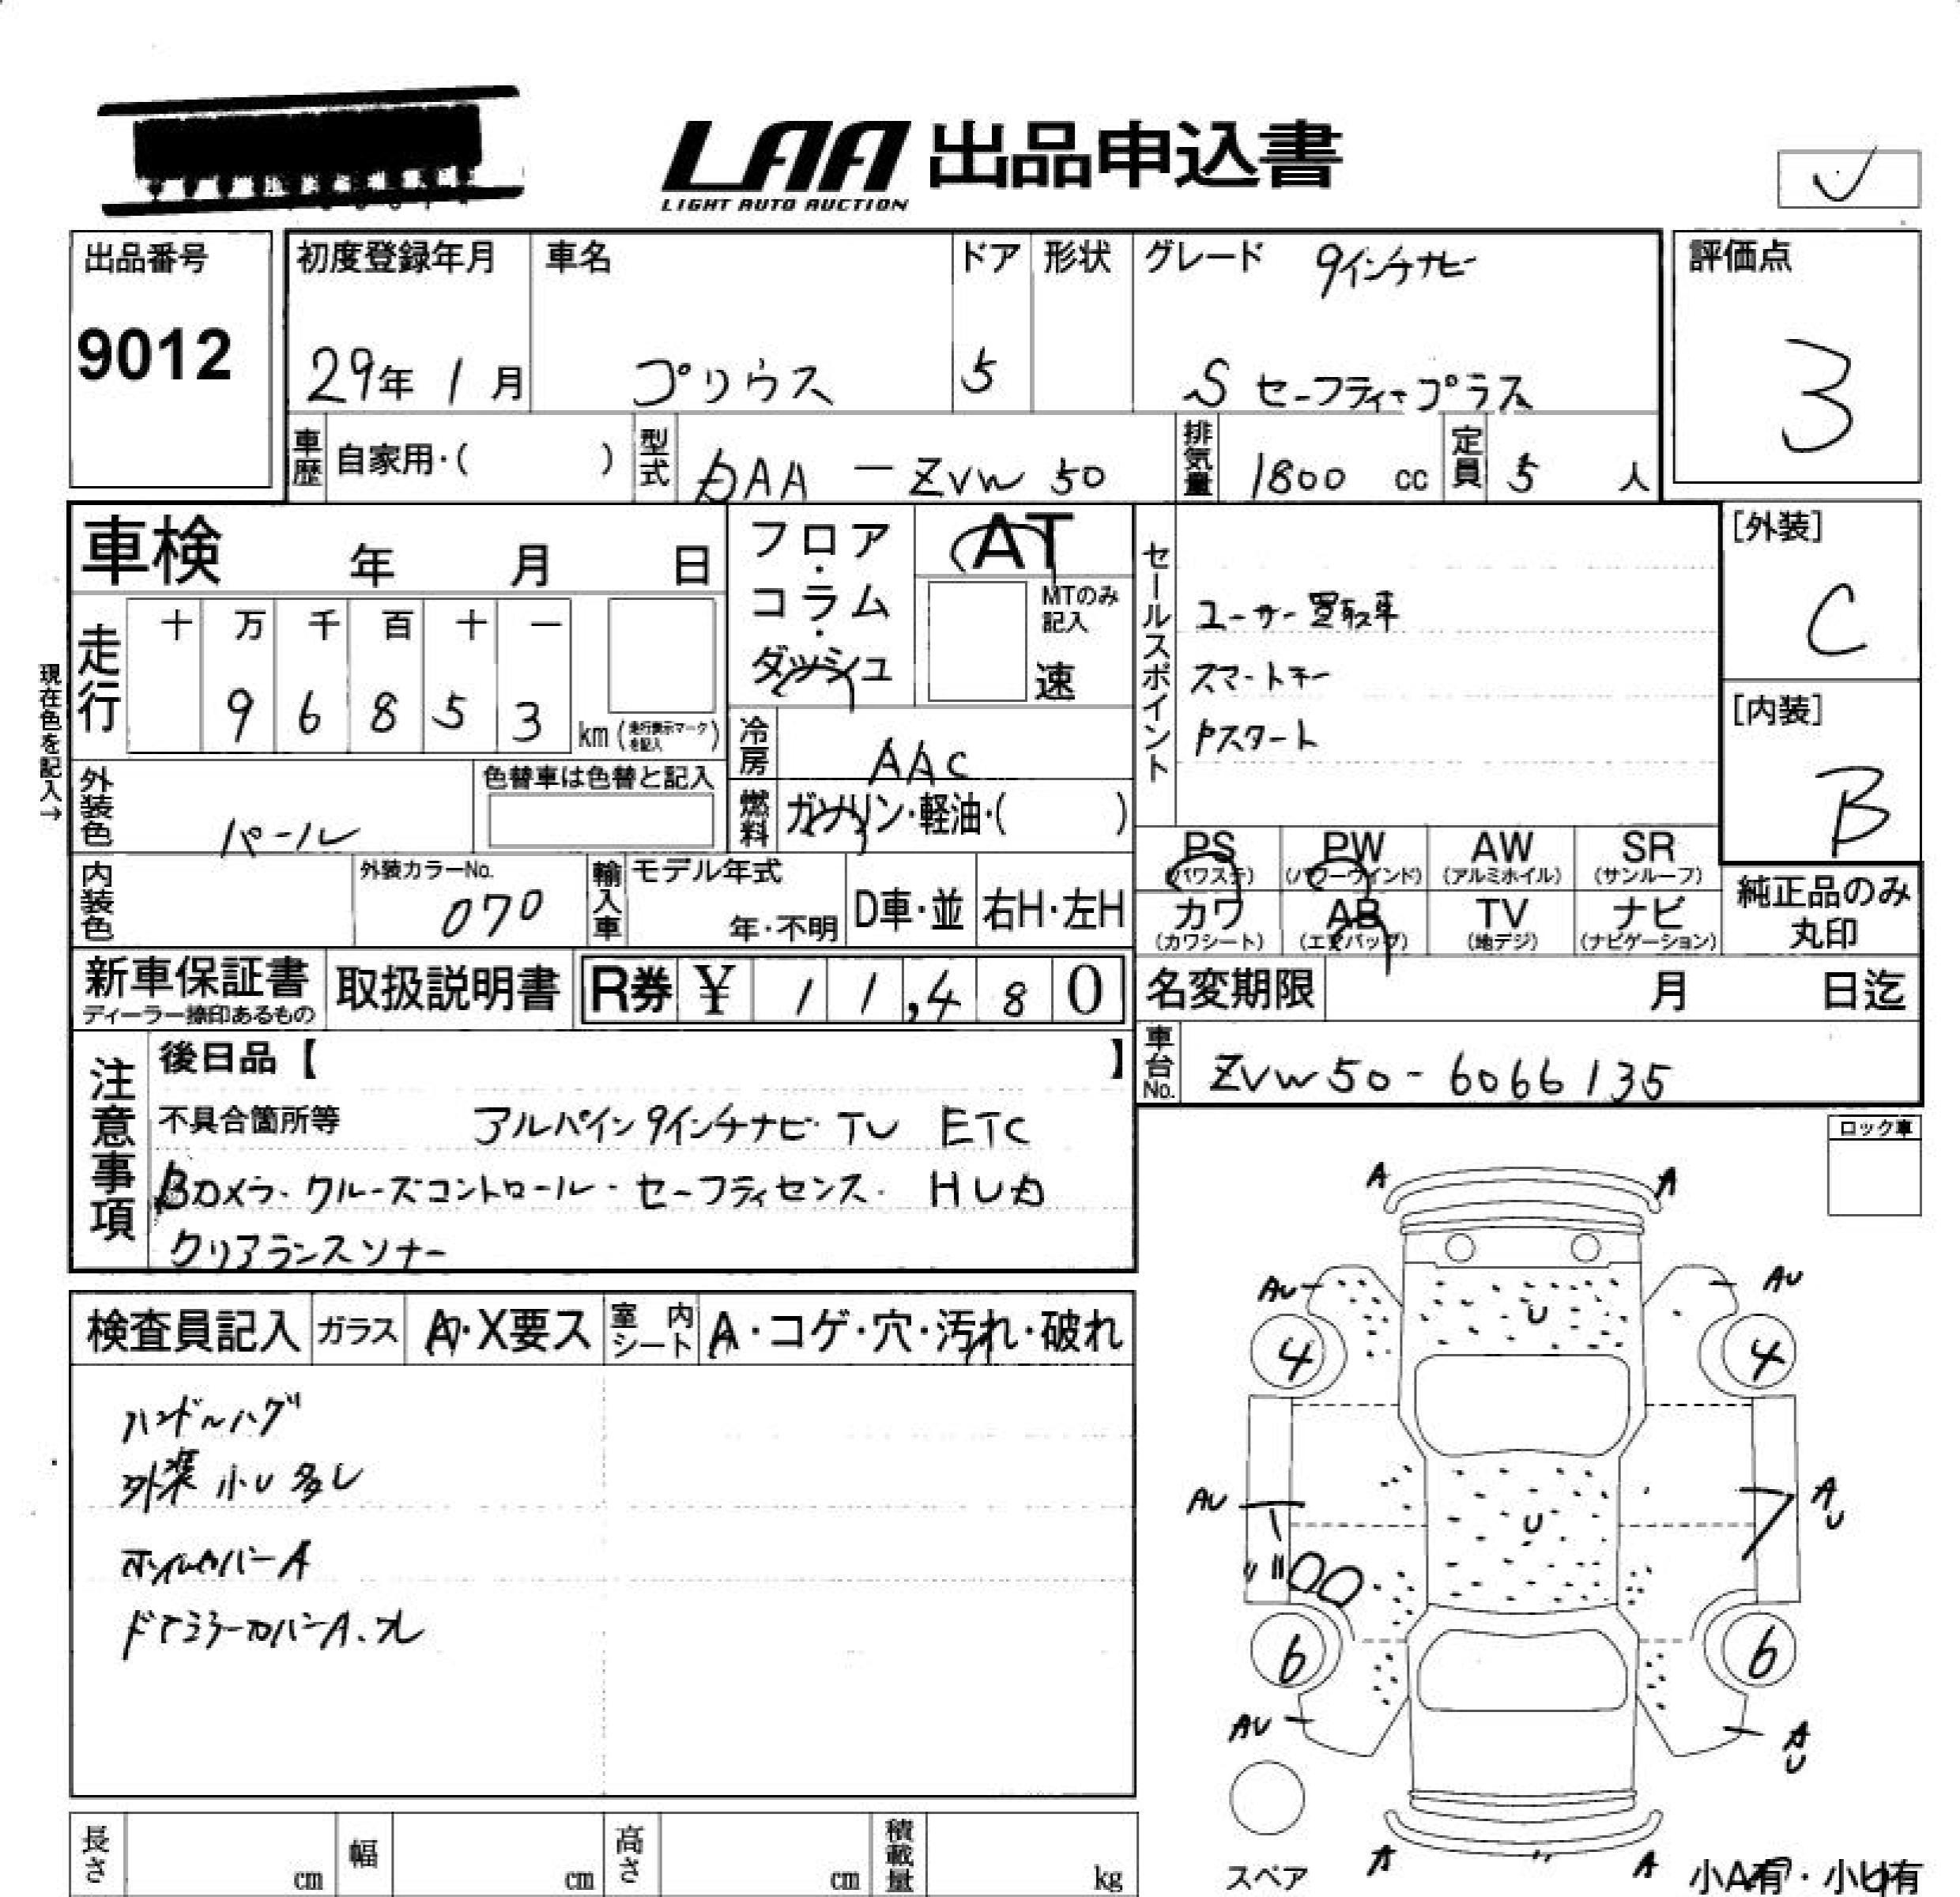 LAA 出品申込書
LIGHT AUTO AUCTION
出品番号
9012
初度登録年月
29年 1月
車名
プリウス
ドア
5
形状
グレード 9インチナビ
S セーフティープラス
評価点
3
車歴
自家用・( )
型式
DAA － ZVW 50
排気量
1800 cc
定員
5 人
車検 年 月 日
フロア・コラム・ダッシュ
AT
MTのみ記入
速
セールスポイント
ユーサー買取車
スマートキー
Pスタート
[外装]
C
[内装]
B
現在色を記入→
走行
十 万 千 百 十 一
9 6 8 5 3
km (走行表示マークを記入)
冷房
AAC
外装色
パール
色替車は色替と記入
燃料
ガソリン・軽油・( )
内装色
外装カラーNo.
070
輸入車
モデル年式
年・不明
D車・並
右H・左H
PS (パワステ)
PW (パワーウインド)
AW (アルミホイル)
SR (サンルーフ)
カワ (カワシート)
AB (エアバッグ)
TV (地デジ)
ナビ (ナビゲーション)
純正品のみ丸印
新車保証書
ディーラー捺印あるもの
取扱説明書
R券 ¥ 11,480
名変期限 月 日迄
車台No.
ZVW50-6066135
注意事項
後日品【 】
不具合箇所等 アルパイン9インチナビ・TV ETC
Bカメラ・クルーズコントロール・セーフティセンス・HUD
クリアランスソナー
ロック車
検査員記入
ガラス
A・X要ス
室内シート
A・コゲ・穴・汚れ・破れ
ハンドルハゲ
外装 小U 多し
ホイルカバーA
ドアミラーカバーA、ワレ
A A
AU AU
U
4 4
AU AU
U
6 6
AU AU
スペア
A A
小A有・小U有
長さ cm
幅 cm
高さ cm
積載量 kg